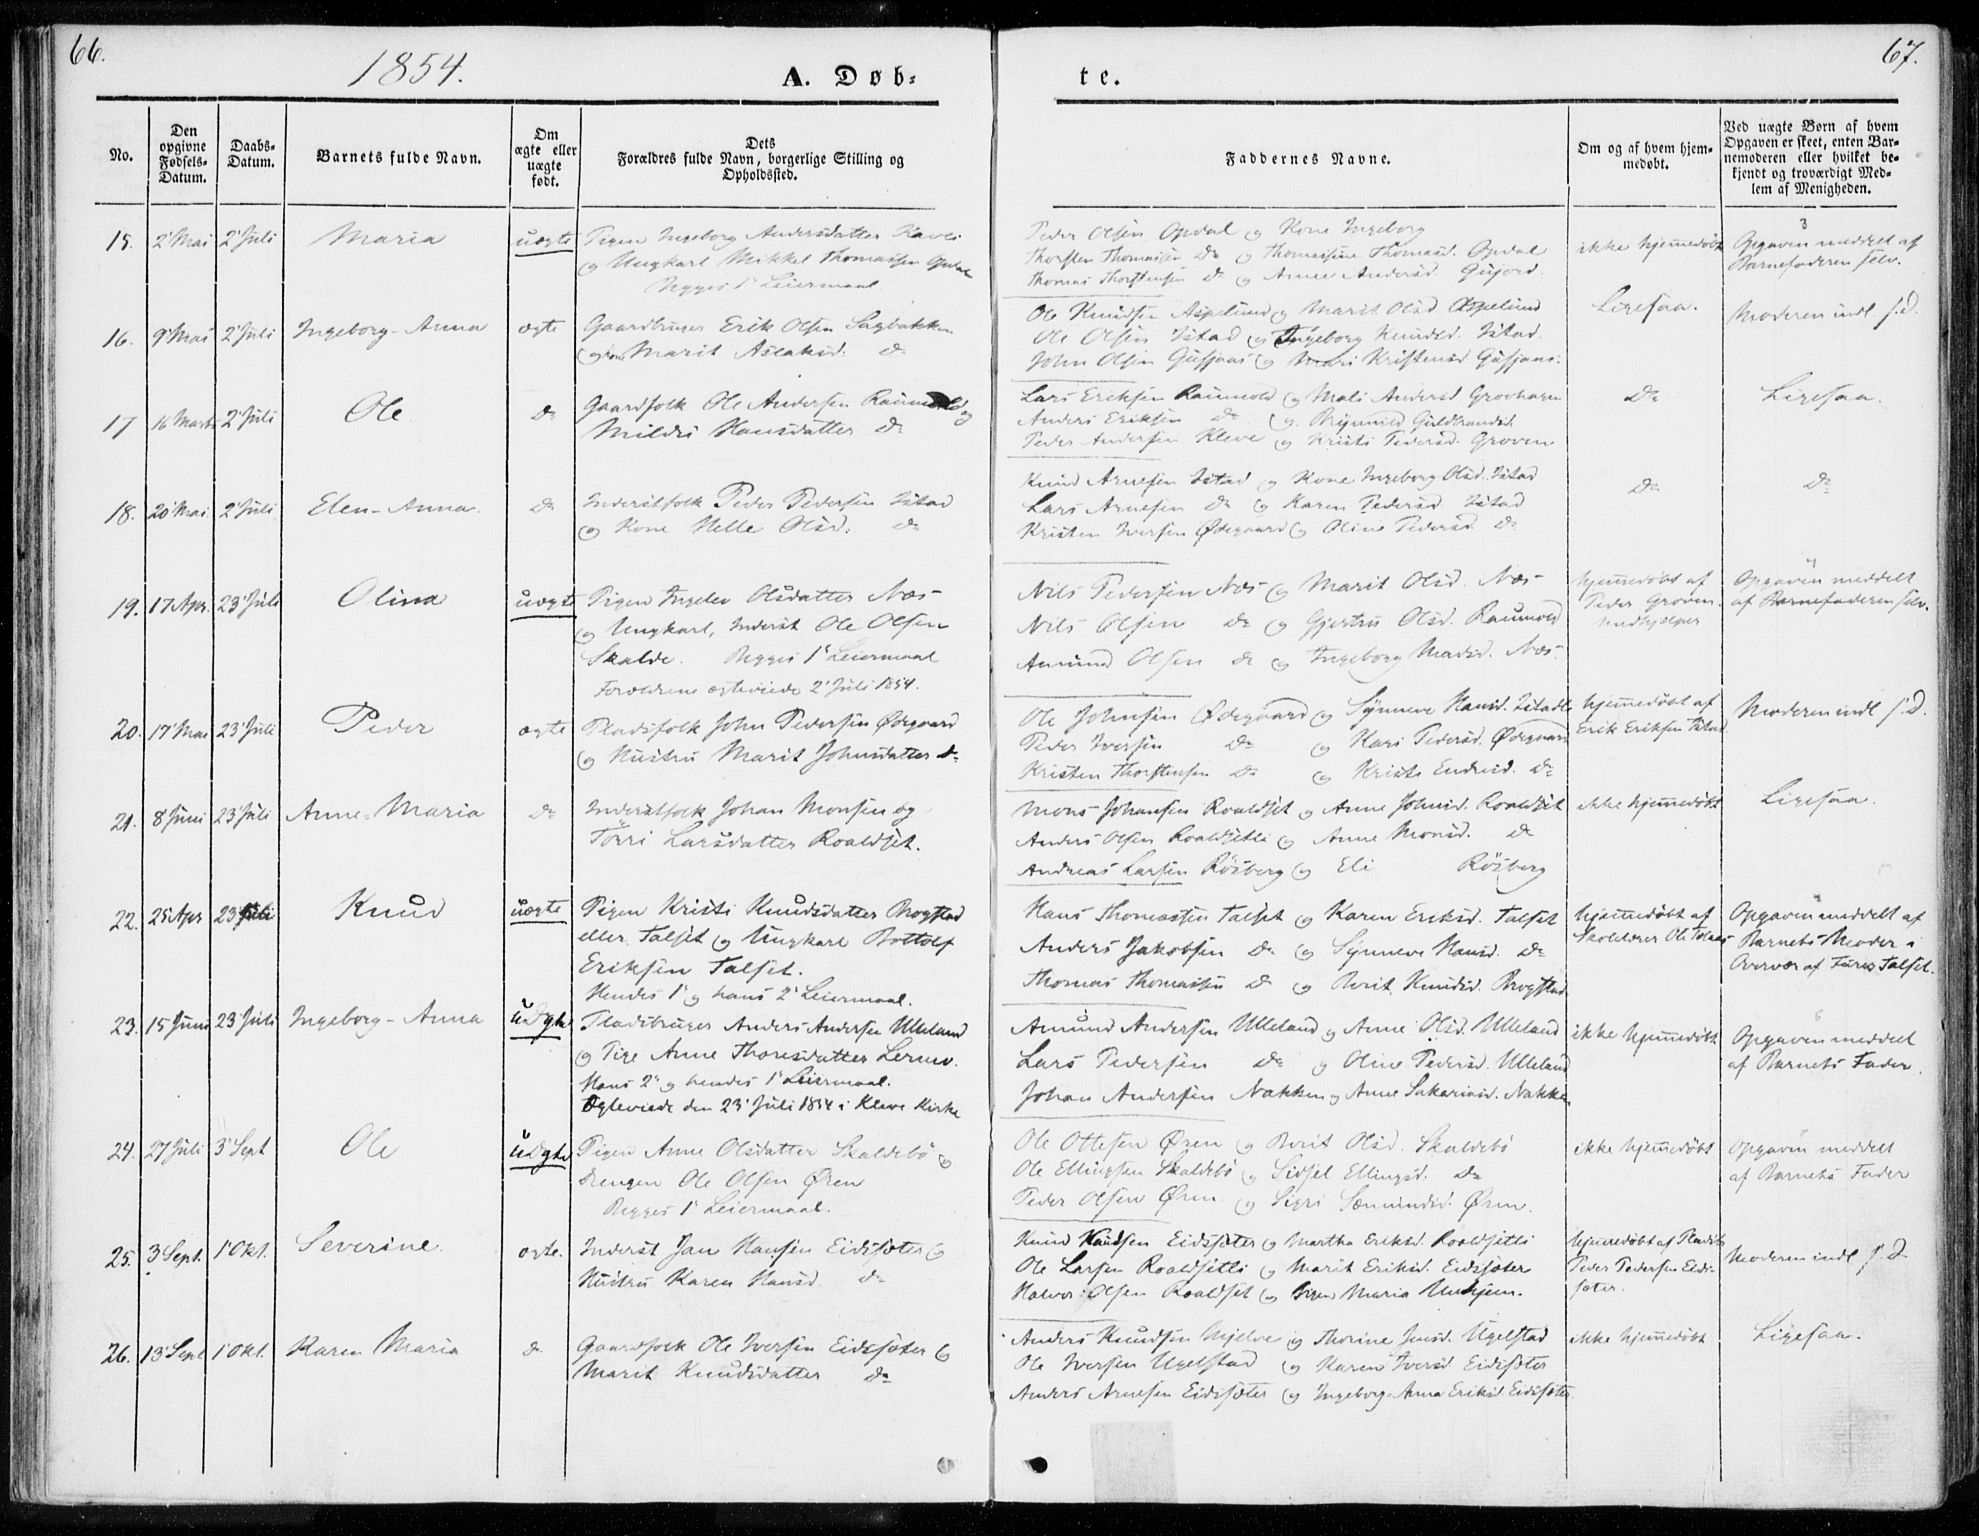 66.
1854.
A. Døb-
te.
67.
No.
Den opgivne Fødsels-Datum.
Daabs-Datum.
Barnets fulde Navn.
Om ægte eller uægte født.
Dets Forældres fulde Navn, borgerlige Stilling og Opholdssted.
Faddernes Navne.
Om og af hvem hjem-medøbt.
Ved uægte Børn af hvem Opgaven er skeet, enten Bar-nemoderen eller hvilket be-kjendt og troværdigt Med-lem af Menigheden.
15. 2' Mai 2' Juli Maria uægte Pigen Ingeborg Andersdatter
og Ungkarl Mikkel Thomassen Opdal
Begges 1' Leiermaal
Peder Olsen Opdal og Kone Ingeborg
Thorsten Thomassen do og Thomasine Thomasd. Opdal
Thomas Thorstensen do og Anne Andersd. Gujord.
ikke hjemmedøbt
3
Opgaven meddelt af
Barnefaderen selv.
16. 9' Mai 2' Juli Ingeborg-Anna ægte Gaardbruger Erik Olsen Sagbakken
og Kone Marit Aslaksd. do
Ole Knudsen Aspelund og Marit Olsd Aspelund
Ole Olsen Istad og Ingeborg Knudsd. Istad.
John Olsen Gusjaas og Mari Kristensd Gusjaas.
Ligesaa.
Moderen indl f. D.
17 16 Marts 2' Juli Ole do Gaardfolk Ole Andersen Raumold og
Mildri Hansdatter do
Lars Eriksen Raumold og Mali Andersd Grovhagen
Anders Eriksen do og Guldbrandsd.
Peder Andersen Kleve og Kristi Pedersd. Groven
do
Ligesaa.
18. 20' Mai 2' Juli Elen-Anna do Inderstfolk Peder Pedersen Istad
og Kone Helle Olsd. do
Knud Arnesen Istad og Kone Ingeborg Olsd. Istad
Lars Arnesen do og Karen Pedersd. Istad
Kristen Iversen Ødegaard og Oline Pedersd. do
do
do
19. 17 Apr. 23' Juli Olina uægte Pigen Ingeler Olsdatter Næs
og Ungkarl, Inderst Ole Olsen
Skalde. Begges 1' Leiermaal
Forældrene ægteviede 2' Juli 1854.
Nils Pedersen Næs og Marit Olsd. Næs
Nils Olsen do og Gjertru Olsd. Raumold
Amund Olsen do og Ingeborg Madsd. Næs
hjemmedøbt af
Peder Groven
Medhjelper
Opgaven meddelt
af Barnefaderen selv.
20. 17' Mai 23' Juli Peder ægte Pladsfolk John Pedersen Ødegaard
og Hustru Marit Johnsdatter do
Ole Johnsen Ødegaard og Synneve Hansd. Istadli
Peder Iversen do og Kari Pedersd. Ødegaard
Kristen Thorstensen do og Kristi Endresd. do
hjemmedøbt af
Erik Eriksen Istad
Moderen indl f. D.
21. 8 Juni 23' Juli Anne-Maria do Inderstfolk Johan Monsen og
Törri Larsdatter Roaldset.
Mons Johansen Roaldset og Anne Johnsd. Roaldset
Anders Olsen Roaldsetli og Anne Monsd. do
Andreas Larsen Rösberg og Eli Rösberg
ikke hjemmedøbt
Ligesaa.
22. 25 Apr 23 Juli Knud uægte Pigen Kristi Knudsdatter Brogstad
eller Talset og Ungkarl Bottolf
Eriksen Talset.
Hendes 1' og hans 2' Leiermaal.
Hans Thomassen Talset og Karen Eriksd. Talset
Anders Jakobsen do og Synneve Hansd. do
Thomas Thomassen do og Berit Knudsd. Brogstad
hjemmedøbt af
Skolelærer Ole
Opgaven meddelt af
Barnets Moder i
Overvær af Talset.
23. 15 Juni 23' Juli Ingeborg-Anna uÆgte Pladsbruger Anders Andersen Ulleland
og Pige Anne Thoresdatter
Hans 2' og hendes 1' Leiermaal.
Ægteviede den 23' Juli 1854 i Kleve Kirke
Amund Andersen Ulleland og Anne Olsd. Ulleland
Lars Pedersen do og Oline Pedersd. Ulleland
Johan Andersen Nakken og Anne Sakariasd. Nakken
ikke hjemmedøbt
6
Opgaven meddelt
af Barnets Fader.
24. 27 Juli 3' Sept Ole uÆgte Pigen Anne Olsdatter Skaldebø og
Drengen Ole Olsen Øren
Begges 1' Leiermaal.
Ole Ottesen Øren og Berit Olsd. Skaldebø
Ole Ellingsen Skaldebø og Sidsel Ellingsd. do
Peder Olsen Øren og Sigri Sæmundsd. Øren.
ikke hjemmedøbt
Opgaven meddelt
af Barnets Fader
25. 3 Sept. 1' Okt. Severine. ægte. Inderst Jan Hansen Eidssæter og
Hustru Karen Hansd. do
Knud Knudsen Eidssæter og Martha Eriksd. Roaldsetli
Ole Larsen Roaldsetli og Marit Eriksd. Eidssæter
Halvor Olsen Roaldset og Maria
hjemmedøbt af
Peder Pedersen Eids-
sæter.
Moderen indl f. D.
26. 13' Sept 1' Okt. Karen Maria do Gaardfolk Ole Iversen Eidssæter og
Marit Knudsdatter do
Anders Knudsen Mjelve og Thorine Jensd. Ugelstad
Ole Iversen Ugelstad og Karen Iversd. Eidssæter
Anders Arnesen Eidssæter og Ingeborg-Anna Eriksd. Eidssæter
ikke hjemmedøbt
Ligesaa.